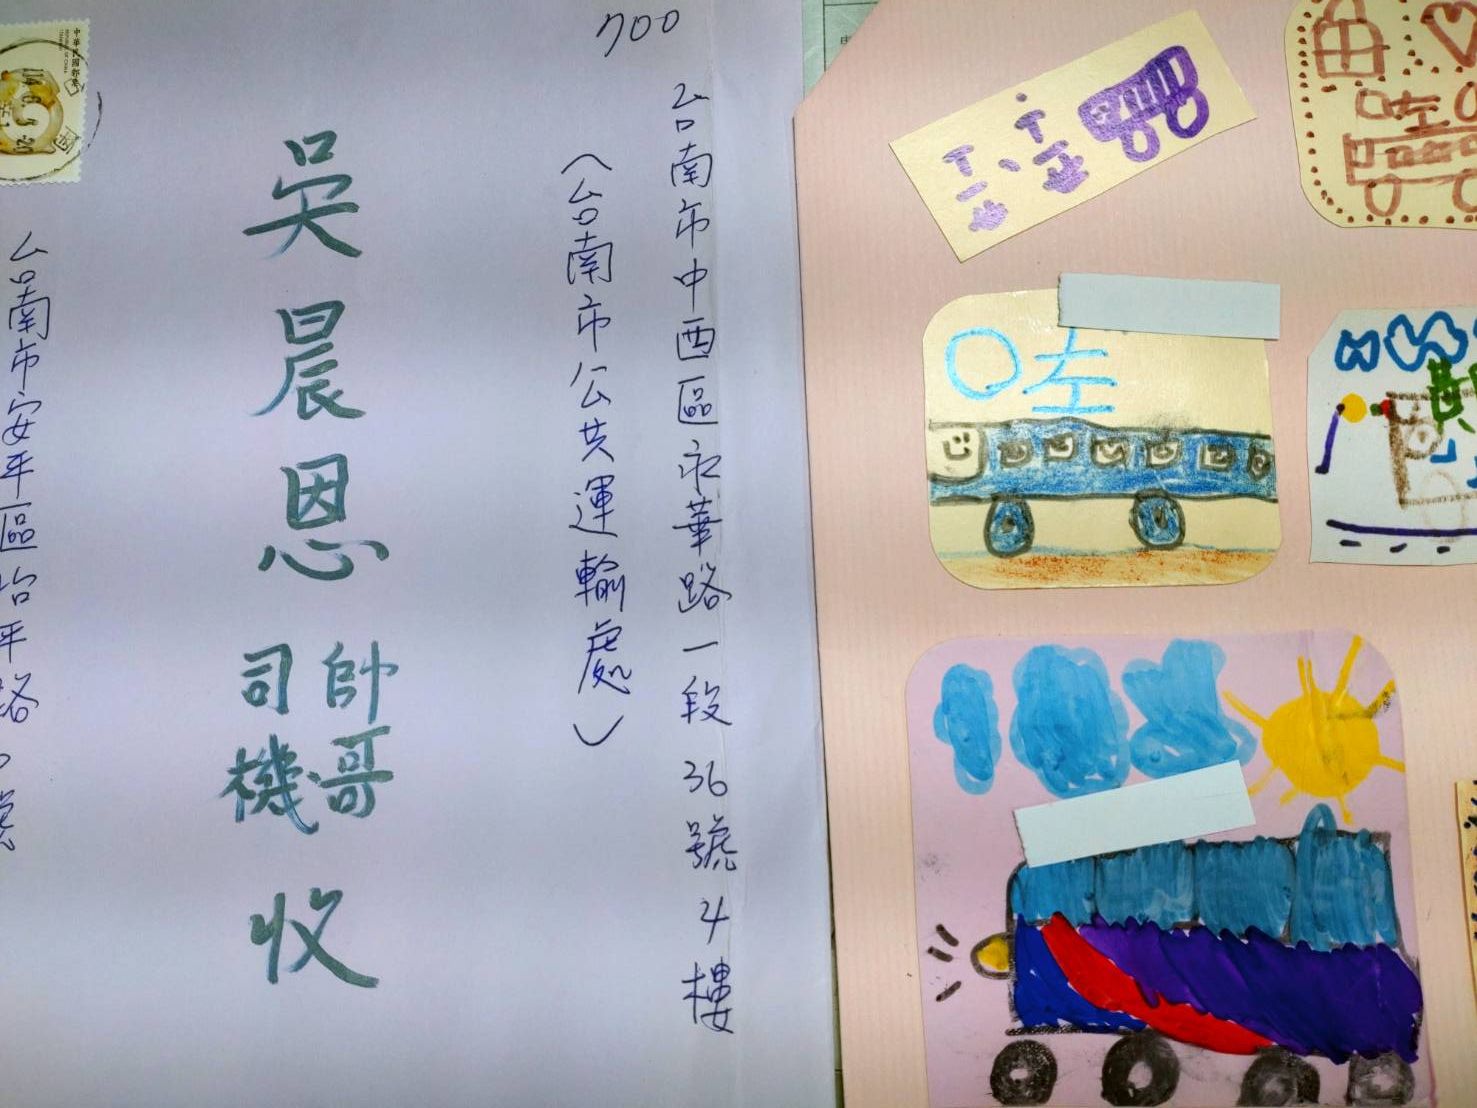 700
台南市中西區永華路一段36號4樓
(台南市公共運輸處)
吳晨恩
帥哥
司機
收
中華民國郵票
REPUBLIC OF CHINA
台南市安平區怡平路
哇